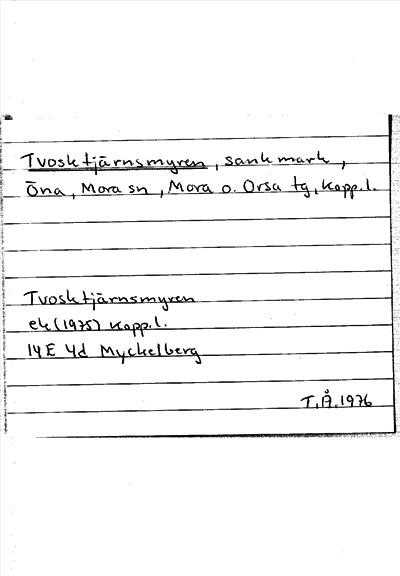 Tvosktjärnsmyren, sankmark,
Öna, Mora sn, Mora o. Orsa tg, Kopp.l.
Tvosktjärnsmyren
ek (1975) Kopp.l.
14E 4d Myckelberg
T.Å. 1976